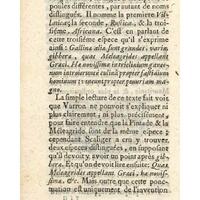 posées differentes, par autant de noms
distingués. Il nomme la premiere Vil-
latica; la seconde, Rustica, & la troi-
siéme, Africana. C'est en parlant de
cette troisiéme espece qu'il s'exprime
ainsi: Gallinæ alta, sunt grandes, variæ,
gibberæ, quas Meleagrides appellant
Græci. Hæ novissimæ in triclinium ganea-
rium introierunt culina propter fastidium
hominum & veneunt propter penuriam mag-
no.
La simple lecture de ce texte fait voir
que Varron ne pouvoit s'expliquer ni plus
clairement, ni plus précisément,
pour faire entendre, que la Pintade & la
Méleagride, sont de la même espece;
cependant Scaliger a cru y trouver
deux especes distinguées, en supposant
qu'il devoit y avoir un point après gib-
beræ. Et qu'on devoit lire ensuite: Quas
Meleagrides appellant Græci, hæ novis-
simæ, &c. Mais outre que cette ponc-
tuation est uniquement de l'invention